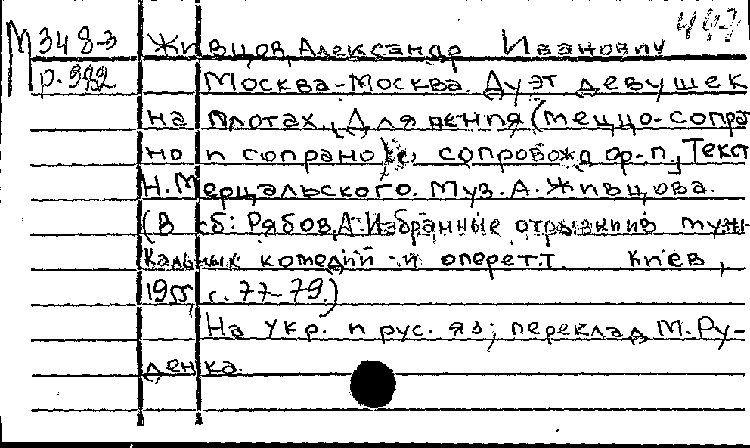 447
М 348-3 Живцов, Александр Иванович
р. 992 Москва-Москва. Дуэт девушек
на плотах. Для пения (меццо-сопра
но и сопрано) с сопровожд. ф-п., Текст
Н. Мерцальского. Муз. А. Живцова.
(В сб: Рябов, А. Избранные отрывки из музы
кальных комедий и оперетт. Киев,
1955, с. 77-79.)
На укр. и рус. яз; переклад М. Ру-
денка.